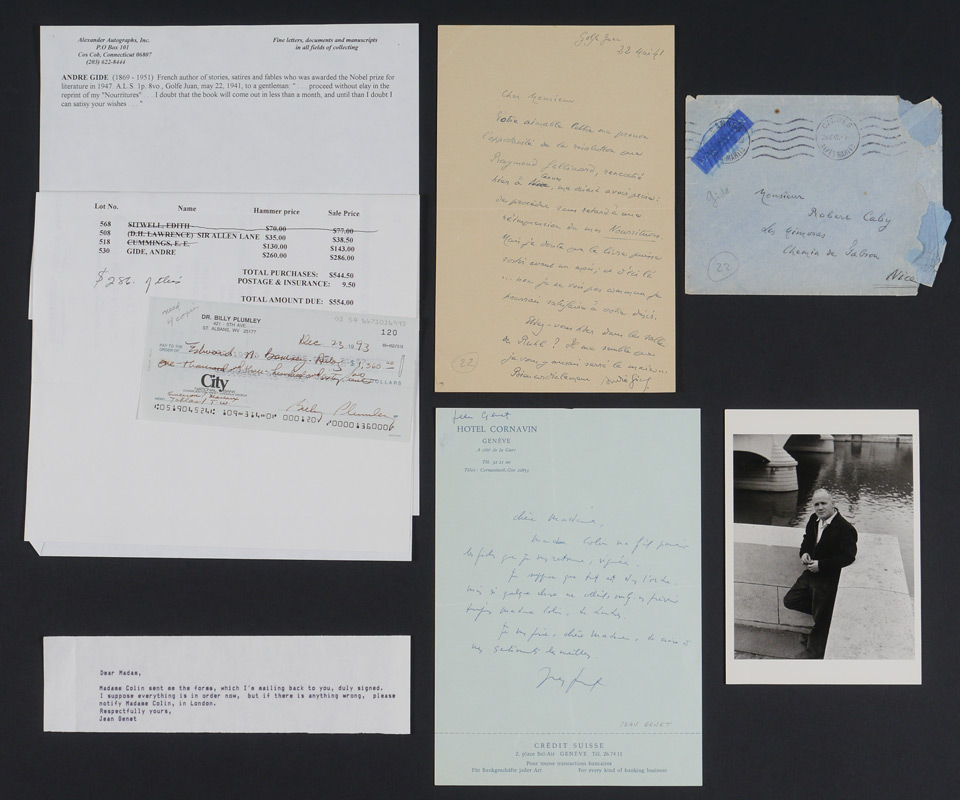 Alexander Autographs, Inc.
P.O Box 101
Cos Cob, Connecticut 06807
(203) 622-8444
Fine letters, documents and manuscripts
in all fields of collecting
ANDRE GIDE (1869 - 1951) French author of stories, satires and fables who was awarded the Nobel prize for
literature in 1947. A.L.S 1p. 8vo., Golfe Juan, may 22, 1941, to a gentleman: " . . . proceed without elay in the
reprint of my "Nourritures" . . . I doubt that the book will come out in less than a month, and until than I doubt I
can satisy your wishes . . . "
Lot No. Name Hammer price Sale Price
568 SITWELL, EDITH $70.00 $77.00
508 (D.H. LAWRENCE) SIR ALLEN LANE $35.00 $38.50
518 CUMMINGS, E. E. $130.00 $143.00
530 GIDE, ANDRE $260.00 $286.00
TOTAL PURCHASES: $544.50
POSTAGE & INSURANCE: 9.50
TOTAL AMOUNT DUE: $554.00
$286. of this
need
DR. BILLY PLUMLEY
421 - 6TH AVE.
ST. ALBANS, WV 25177
120
Dec 23 1993
PAY TO THE
ORDER OF Edward N. $1,360
One Thousand Three Hundred Sixty DOLLARS
City
Billy Plumley
Dear Madam,
Madame Colin sent me the forms, which I'm mailing back to you, duly signed.
I suppose everything is in order now, but if there is anything wrong, please
notify Madame Colin, in London.
Respectfully yours,
Jean Genet
Golfe Juan
22 Mai 41
Cher Monsieur
Votre aimable lettre me prouve
l'opportunité de la résolution que
Raymond Gallimard, rencontré
hier à Cannes, me disait avoir prise:
de procéder sans retard à une
réimpression de mes Nourritures.
Mais je doute que le livre puisse
avant un mois; et d'ici là
non, je ne vois pas comment je
pourrais satisfaire à votre désir.
de Ruhl? Il me semble que
Bien cordialement André Gide
22
Gide
Monsieur
Robert Caby
Les Mimosas
Chemin de
Nice
22
Jean Genet
HOTEL CORNAVIN
GENÈVE
A côté de la Gare
Chère Madame,
Madame Colin me fit parvenir
que je vous retourne, signées.
Je suppose que tout est dans l'ordre
mais si quelque chose
Madame Colin, à Londres.
Je vous prie, chère Madame, de croire à
mes sentiments les meilleurs.
Jean Genet
JEAN GENET
CRÉDIT SUISSE
2, place Bel-Air GENÈVE Tél. 26 74 11
Pour toutes transactions bancaires
Für Bankgeschäfte jeder Art For every kind of banking business